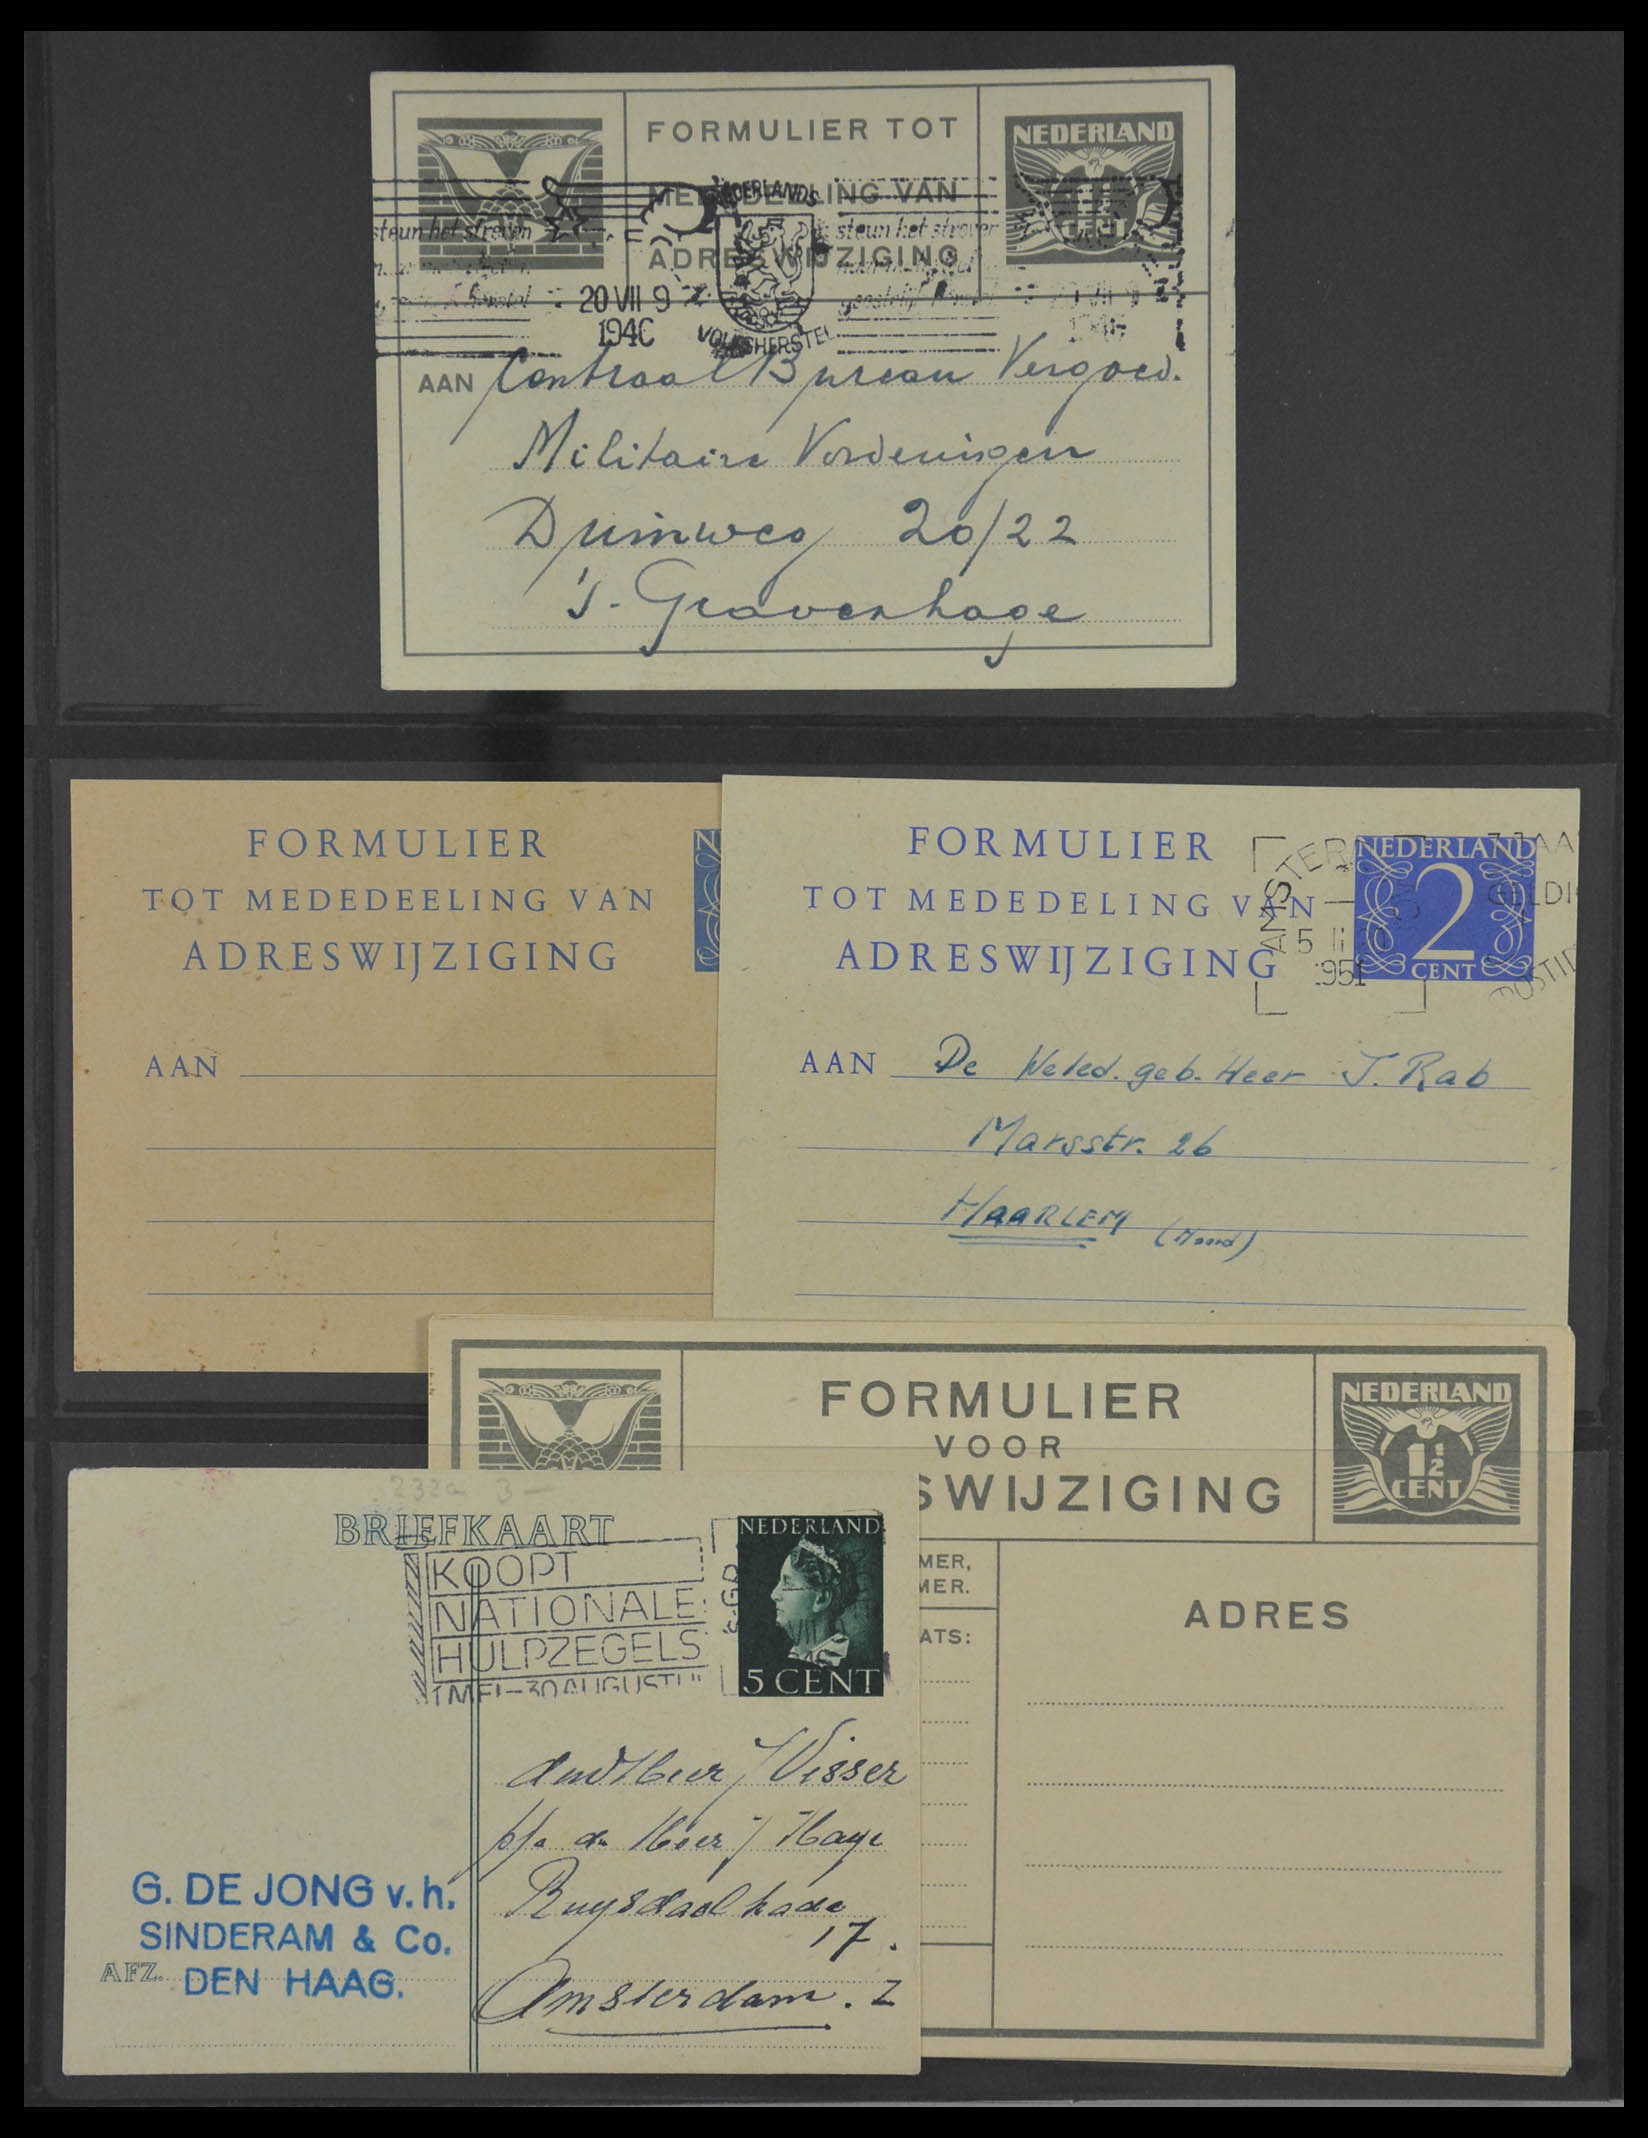 FORMULIER TOT
MEDEDEELING VAN
ADRESWIJZIGING
NEDERLAND
1½
CENT
NEDERLANDS
VOLKSHERSTEL
steun het streven
steun het streven
20 VII 9
1940
AAN Centraal Bureau Vergoed.
Militaire Vorderingen
Duinweg 20/22
's-Gravenhage
FORMULIER
TOT MEDEDEELING VAN
ADRESWIJZIGING
AAN
FORMULIER
TOT MEDEDELING VAN
ADRESWIJZIGING
NEDERLAND
2
CENT
AMSTERDAM
1951
AAN De Weled. geb. Heer J. Rab
Marsstr. 26
HAARLEM (Noord)
FORMULIER
VOOR
SWIJZIGING
NEDERLAND
1½
CENT
MER,
MER.
ATS:
ADRES
232a 3-
BRIEFKAART
KOOPT
NATIONALE
HULPZEGELS
1 MEI-30 AUGUSTUS
NEDERLAND
5 CENT
den Heer J Visser
p/a dn Heer J Haye
Ruysdaelkade
17.
Amsterdam. Z
G. DE JONG v.h.
SINDERAM & Co.
AFZ. DEN HAAG.